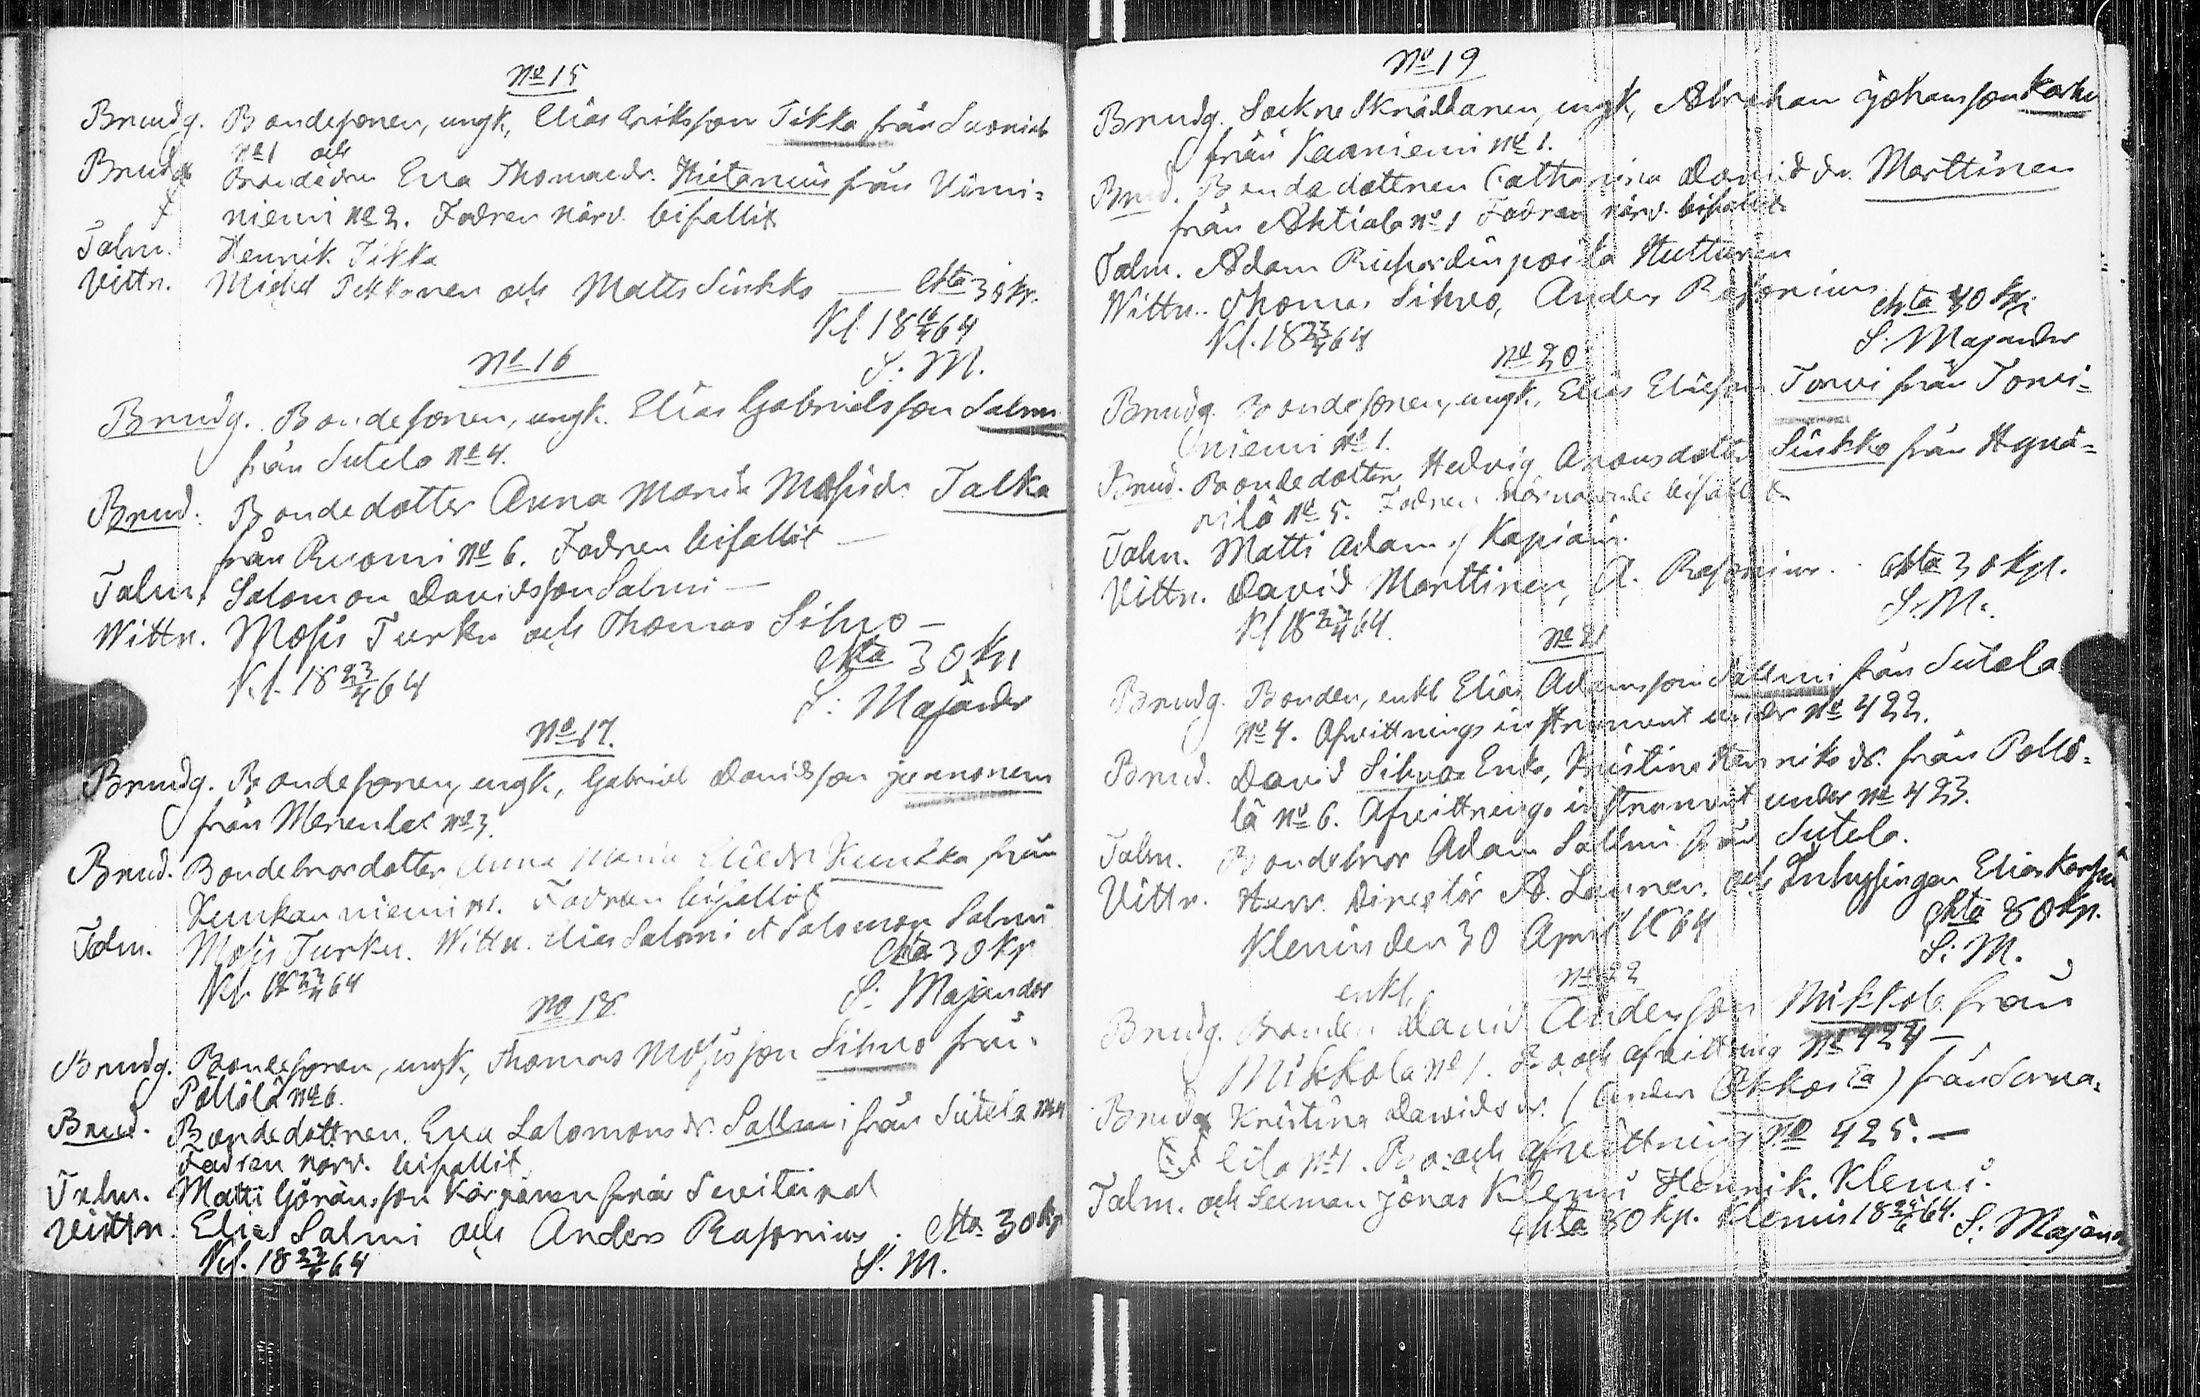 No 15
Brudg. Bondesonen, ungk, Elias Eriksson Tikka från Suoniala
No 1 och
Brud Bondedtrn Eva Thomaedr. Hietaneus från Virmi=
niemi No 2. Fadren närv. bifallit
Talm. Henrik Tikka
Vittn. Michel Pekkonen och Matts Sinkko — Chta 30 kp.
Kl. 18 64
S. M.
No 16
Brudg. Bondesonen, ungk. Elias Gabrielsson Salmi
från Sutela No 4.
Brud. Bondedotter Anna Maria Mosisdr Talka
från Ruomi No 6. Fadren bifallit —
Talm. Salomon Davidsson Salmi —
Wittn. Mosis Turku och Thomas Sihvo —
Chta 30 kp
Kl. 18 23/4 64
S: Majander
No 17.
Brudg. Bondesonen, ungk, Gabriel Davidsson junnonen
från Merenlax No 3.
Brud. Bondebrordotter Anna Maria Eliedr Kunkka från
Kunkanniemi N1. Fadren bifallit
Talm. Mosis Turku. Wittn. Elias Salmi et Salomon Salmi
Chta 30 kp
Kl. 18 23/4 64
S: Majander
No 18
Brudg. Bondesonen, ungk, Thomas Mosisson Sihvo från
Pöllölä No 6.
Brud. Bondedottren Eva Salomonsdr. Sallmi från Sutela No 4
Fadren närv. bifallit
Talm. Matti Göransson Kärpänen från
Vittn. Elias Salmi och Anders Rasonius. Chta 30 kp
Kl. 18 23/4 64
S. M.
No 19
Brudg. Sockne Skräddaren, ungk, Abraham Johansson Karhu
från Kaarniemi No 1.
Brud. Bondedottren Catharina Daviddr. Marttinen
från Ahtiala No 1 Fadren närv. bifallit
Talm. Adam Richardinpoika Huttunen
Wittn. Thomas Sihvo, Anders Rasonius
Chta 30 kp
Kl. 18 23/4 64
S. Majander
No 20
Brudg. Bondesonen, ungk, Elias Eliesson Torvi från Torvi=
niemi No 1.
Brud. Bondedotter Hedvig Aronsdotter Sinkko från Hynä=
rilä No 5. Fadren närvarande bifallit
Talm. Matti Adam Kapiain.
Vittn. David Marttinen, A. Rasonius. Chta 30 kp.
Kl 18 23/4 64.
S. M.
No 21
Brudg. Bonden, enkl Elias Adamsson Sallmi från Sutela
No 4. Afvittrings instrument under No 422.
Brud. David Sihvos Enka, Kristina Henriksdr. från Pöllö=
lä No 6. Afvittrings instrument under No 423.
Talm. Bondebror Adam Sallmi från Sutela.
Vittn. Herr Direktör A. Launen och Inhysingen Elias
Chta 80 kp.
Klemis den 30 April 1864
S. M.
No 22
enkl.
Brudg. Bonden David Andersson Mikkola från
Mikkola No 1. Bo och afvittring No 424 —
Brud Kristina Davidsdr. (Anders Okkos ) från Sorva=
lila No 1. Bo och afvittring No 425. —
Talm. och Leeman Jonas Klemi Henrik Klemi.
Chta 80 kp. Klemis 18 64. S. Majander